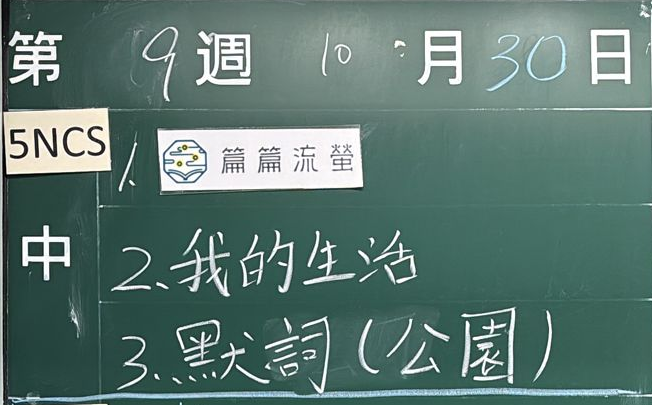 第 9 週 10 月 30 日
5NCS
1. 篇篇流螢
中
2、我的生活
3、默詞(公園)